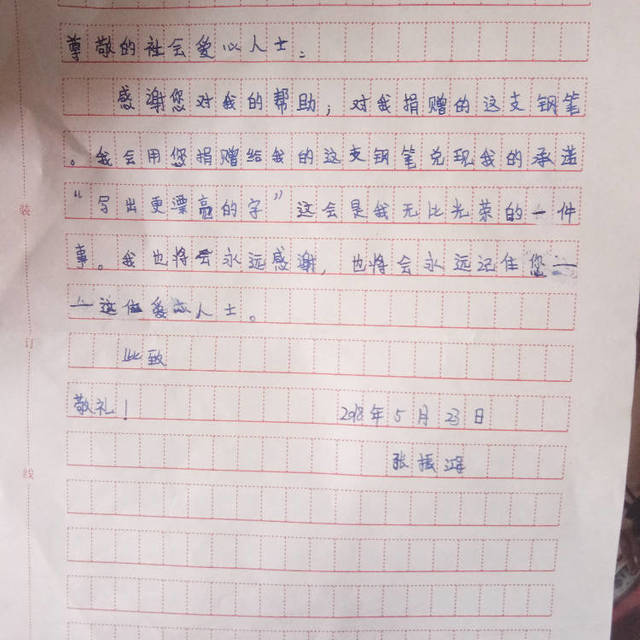 尊敬的社会爱心人士：
感谢您对我的帮助，对我捐赠的这支钢笔
。我会用您捐赠给我的这支钢笔兑现我的承诺
“写出更漂亮的字”这会是我无比光荣的一件
事。我也将会永远感谢，也将会永远记住您—
—这位爱心人士。
此致
敬礼！ 2018年5月23日
张振
装
订
线